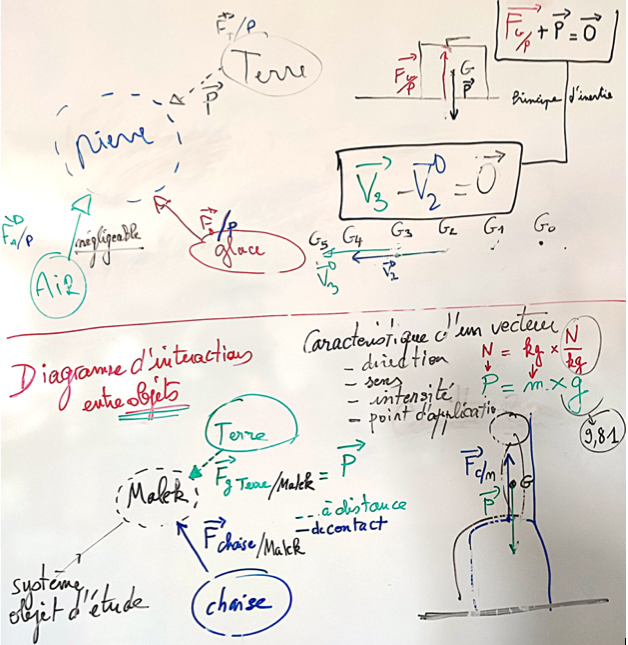 F T/P
Terre
P
pierre
F A/P
négligeable
Air
F /P
glace
F G/P + P = 0
F G/P
G
P
Principe d'inertie
V3 - V2 = 0
G5 G4 G3 G2 G1 G0
V3
V2
Diagramme d'interactions
entre objets
Caracteristique d'un vecteur
- direction
- sens
- intensité
- point d'application
N = kg × N/kg
P = m × g
9,81
Terre
Malek
F g Terre/Malek = P
--- à distance
— de contact
F chaise/Malek
chaise
système
objet d'étude
F c/m
P
G